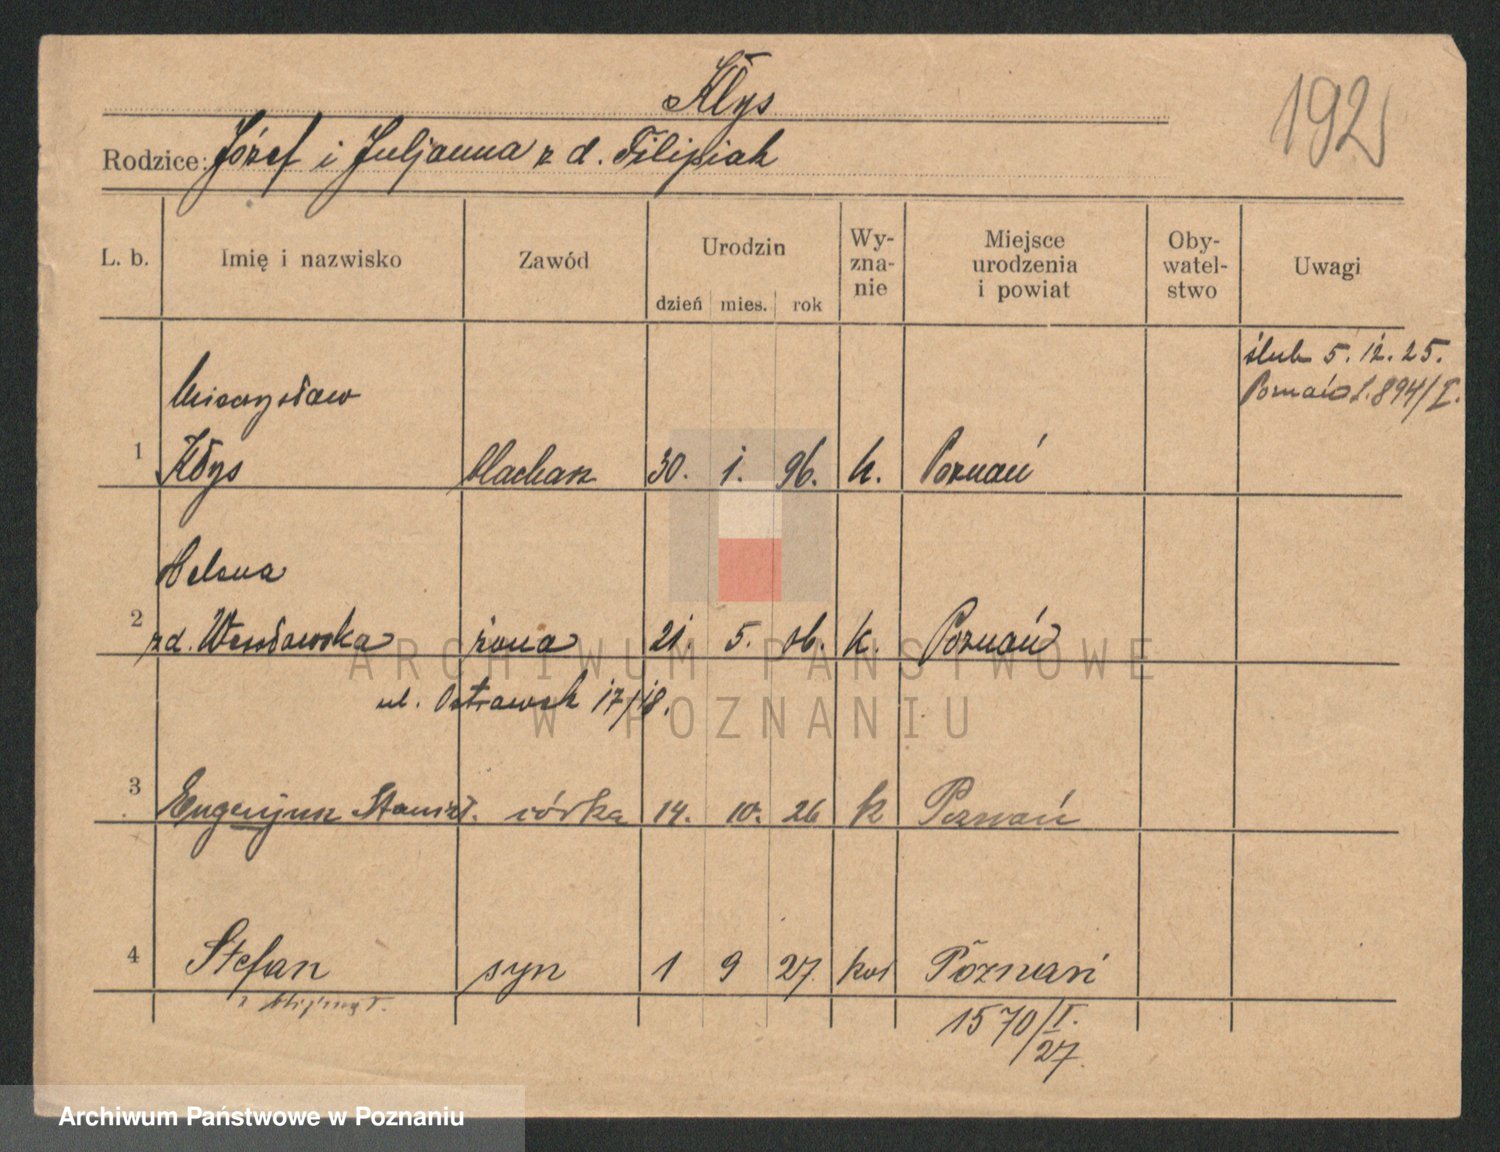 Kłys
192
Rodzice: Józef i Juljanna z d. Filipiak
L. b. Imię i nazwisko Zawód Urodzin dzień mies. rok Wyznanie Miejsce urodzenia i powiat Obywatelstwo Uwagi
ślub 5. 12. 25.
Poznań L. 894/I.
Mieczysław
1 Kłys blacharz 30. 1. 96. k. Poznań
Helena
2 zd. żona 21. 5. 06. k. Poznań
ARCHIWUM PAŃSTWOWE
ul. Ostrówek 17/18.
W POZNANIU
3 Stanisł. córka 14. 10. 26 k Poznań
4 Stefan syn 1 9 27. kat Poznań
1570/I.
27
Archiwum Państwowe w Poznaniu